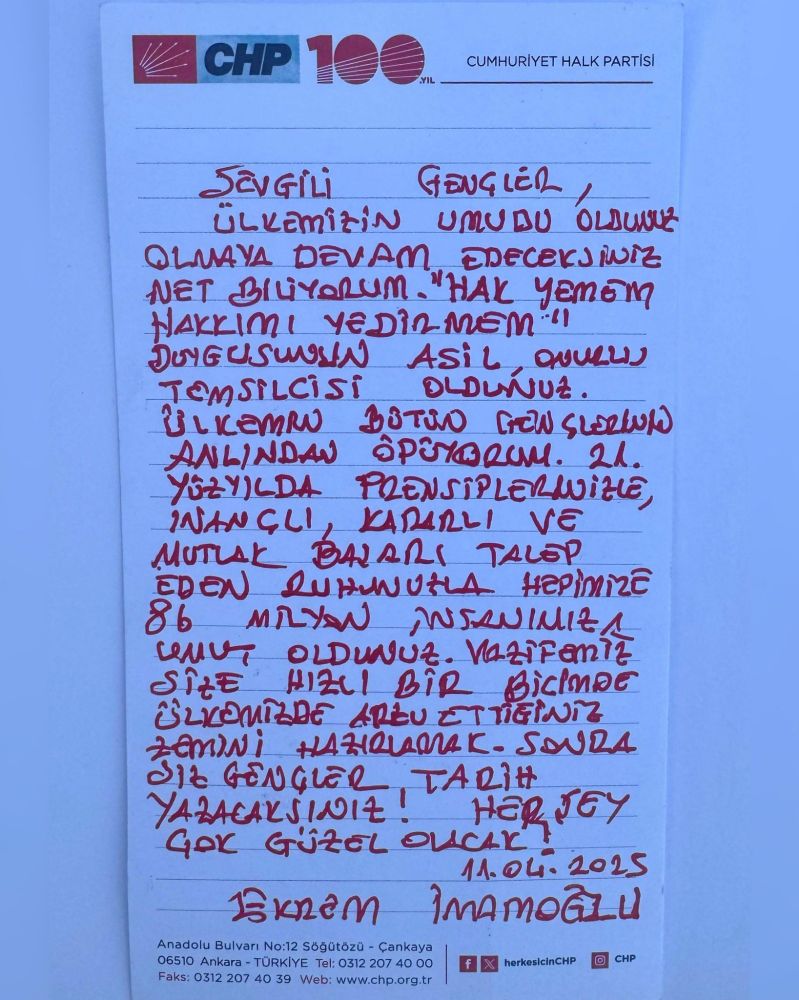 CHP 100.YIL CUMHURİYET HALK PARTİSİ
SEVGİLİ GENÇLER,
ÜLKEMİZİN UMUDU OLDUNUZ
OLMAYA DEVAM EDECEKSİNİZ
NET BİLİYORUM. "HAK YEMEM
HAKKIMI YEDİRMEM"
DUYGUSUNUN ASİL, ONURLU
TEMSİLCİSİ OLDUNUZ.
ÜLKEMİN BÜTÜN GENÇLERİNİN
ANLINDAN ÖPÜYORUM. 21.
YÜZYILDA PRENSİPLERİNİZLE,
İNANÇLI, KARARLI VE
MUTLAK BAŞARI TALEP
EDEN RUHUNUZLA HEPİMİZE
86 MİLYON İNSANIMIZA
UMUT OLDUNUZ. VAZİFEMİZ
SİZE HIZLI BİR BİÇİMDE
ÜLKEMİZDE ARZU ETTİĞİNİZ
ZEMİNİ HAZIRLAMAK. SONRA
SİZ GENÇLER TARİH
YAZACAKSINIZ! HER ŞEY
ÇOK GÜZEL OLACAK!
11.04.2025
EKREM İMAMOĞLU
Anadolu Bulvarı No:12 Söğütözü - Çankaya
06510 Ankara - TÜRKİYE Tel: 0312 207 40 00
Faks: 0312 207 40 39 Web: www.chp.org.tr
herkesicinCHP CHP